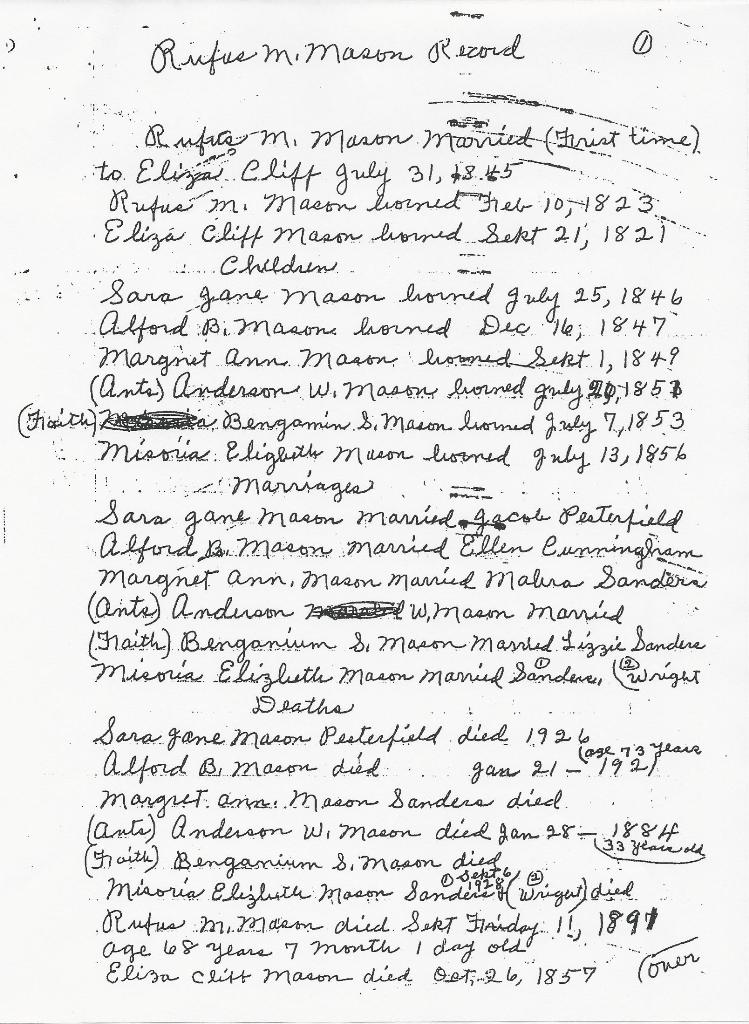 Rufus M. Mason Record ①
Rufus M. Mason Married (First time)
to Eliza Cliff July 31, 1845
Rufus M. Mason borned Feb 10, 1823
Eliza Cliff Mason borned Sekt 21, 1821
Children
Sara Jane Mason borned July 25, 1846
Alford B. Mason borned Dec 16, 1847
Margnet Ann Mason borned Sekt 1, 1849
(Ants) Anderson W. Mason borned July 1851
(Fraith) Bengamin S. Mason borned July 7, 1853
Misoria Eligbeth Mason borned July 13, 1856
Marriages
Sara Jane Mason Married Jacob Pesterfield
Alford B. Mason Married Ellen Cunningham
Margnet Ann. Mason Married Sanders
(Ants) Anderson W, Mason Married
(Fraith) Benganium S. Mason Married Lizzie Sanders
Misoria Elizbeth Mason Married Sanders, ① (Wright ②
Deaths
Sara Jane Mason Pesterfield died 1926
(age 73 years
Alford B. Mason died Jan 21 - 1921
Margret Ann. Mason Sanders died
(Ants) Anderson W. Mason died Jan 28 - 1884
(33 years old
(Fraith) Benganium S. Mason died
Sekt 6, 1928
Misoria Elizbeth Mason Sanders ① (Wright) ② died
Rufus M. Mason died Sekt Friday 11, 1891
age 68 years 7 month 1 day old
Eliza Cliff Mason died Oct, 26, 1857 (over